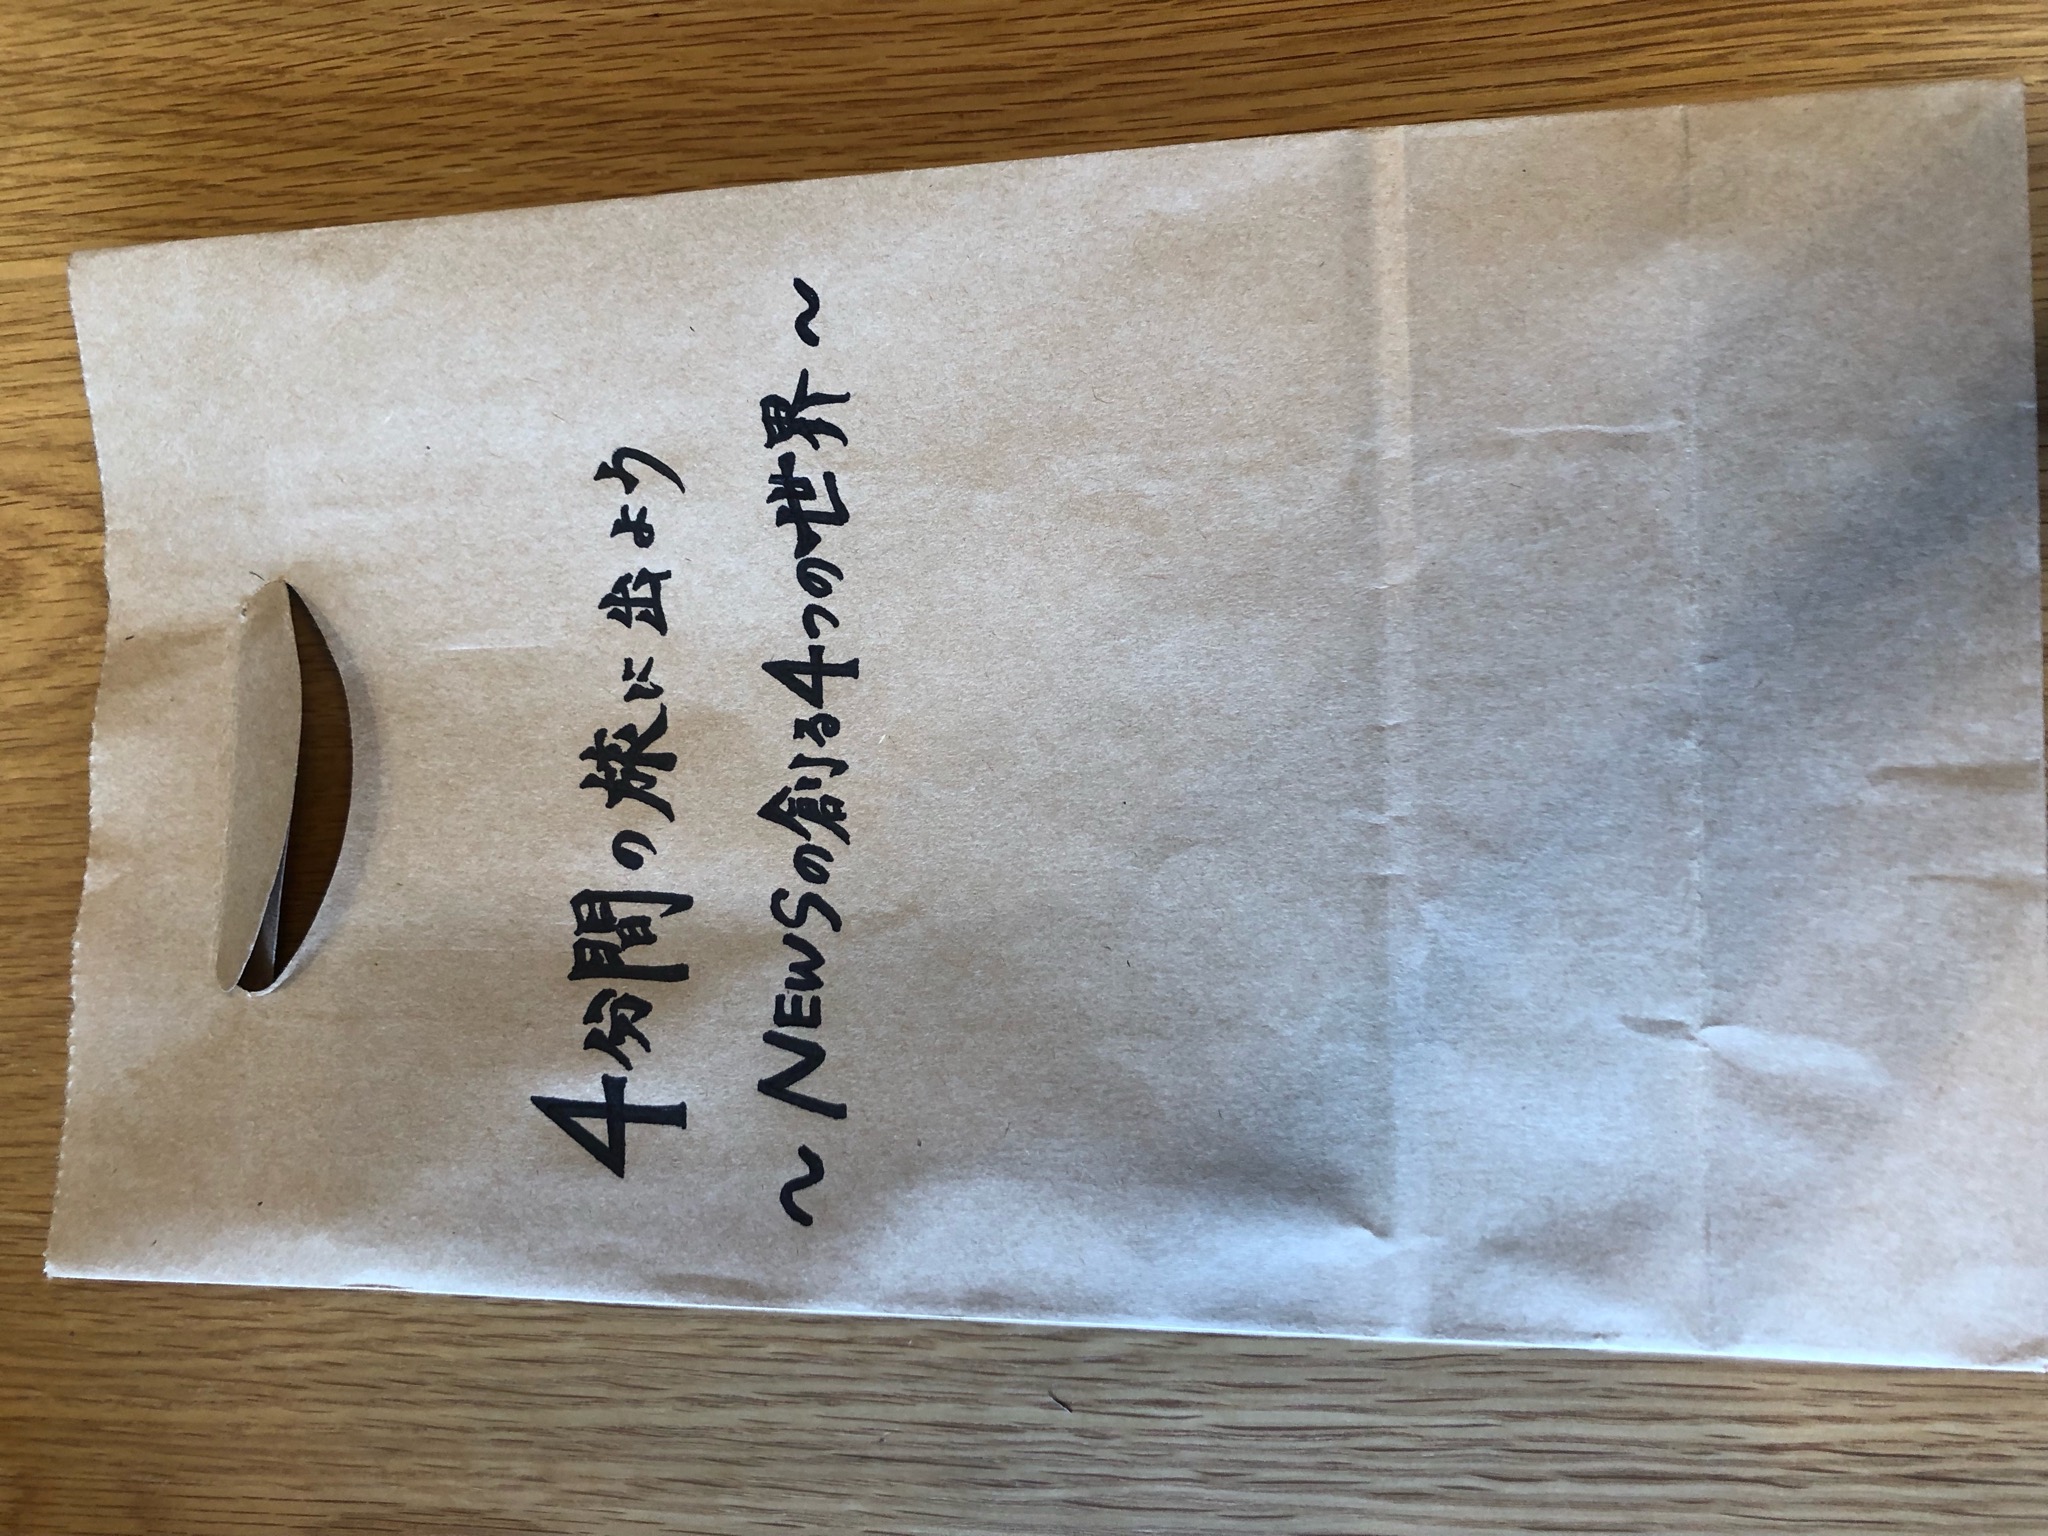 4分間の旅に出よう
〜NEWSの創る4つの世界〜